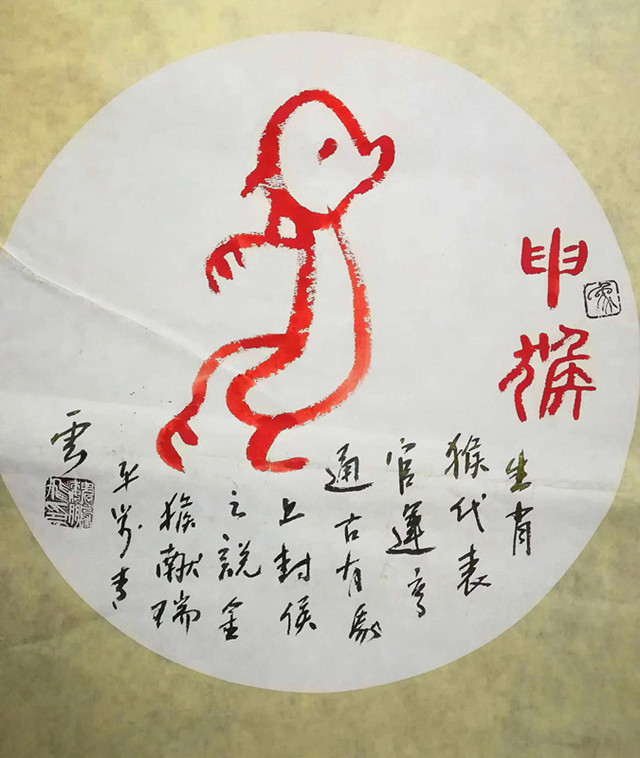 申猴
生肖
猴代表
官運亨
通古有馬
上封侯
之説金
猴献瑞
平步青
雲